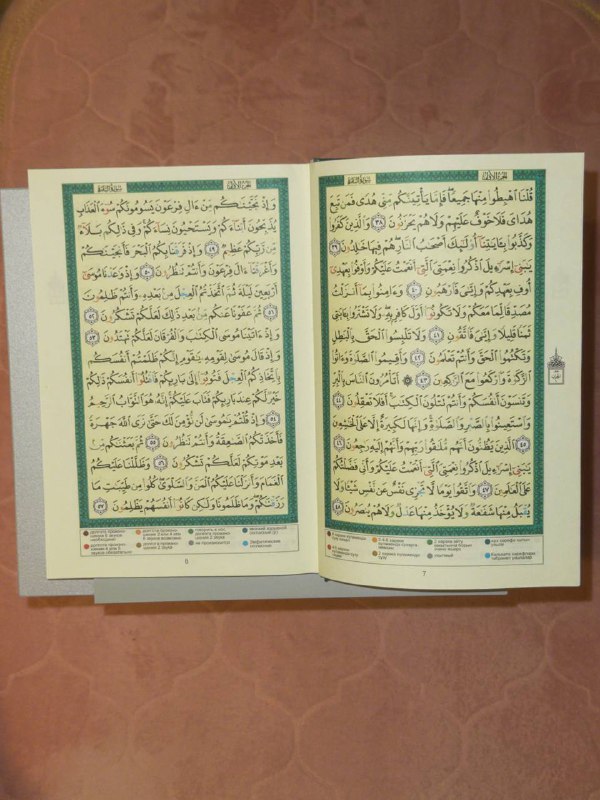 سُورَةُ البَقَرَةِ الجُزْءُ الأَوَّلُ
قُلْنَا ٱهْبِطُوا۟ مِنْهَا جَمِيعًا فَإِمَّا يَأْتِيَنَّكُم مِّنِّى هُدًى فَمَن تَبِعَ
هُدَاىَ فَلَا خَوْفٌ عَلَيْهِمْ وَلَا هُمْ يَحْزَنُونَ ٣٨ وَٱلَّذِينَ كَفَرُوا۟
وَكَذَّبُوا۟ بِـَٔايَـٰتِنَآ أُو۟لَـٰٓئِكَ أَصْحَـٰبُ ٱلنَّارِ هُمْ فِيهَا خَـٰلِدُونَ ٣٩
يَـٰبَنِىٓ إِسْرَٰٓءِيلَ ٱذْكُرُوا۟ نِعْمَتِىَ ٱلَّتِىٓ أَنْعَمْتُ عَلَيْكُمْ وَأَوْفُوا۟ بِعَهْدِىٓ
أُوفِ بِعَهْدِكُمْ وَإِيَّـٰىَ فَٱرْهَبُونِ ٤٠ وَءَامِنُوا۟ بِمَآ أَنزَلْتُ
مُصَدِّقًا لِّمَا مَعَكُمْ وَلَا تَكُونُوٓا۟ أَوَّلَ كَافِرٍۭ بِهِۦ وَلَا تَشْتَرُوا۟ بِـَٔايَـٰتِى
ثَمَنًا قَلِيلًا وَإِيَّـٰىَ فَٱتَّقُونِ ٤١ وَلَا تَلْبِسُوا۟ ٱلْحَقَّ بِٱلْبَـٰطِلِ
وَتَكْتُمُوا۟ ٱلْحَقَّ وَأَنتُمْ تَعْلَمُونَ ٤٢ وَأَقِيمُوا۟ ٱلصَّلَوٰةَ وَءَاتُوا۟
ٱلزَّكَوٰةَ وَٱرْكَعُوا۟ مَعَ ٱلرَّٰكِعِينَ ٤٣ ۞ أَتَأْمُرُونَ ٱلنَّاسَ بِٱلْبِرِّ
وَتَنسَوْنَ أَنفُسَكُمْ وَأَنتُمْ تَتْلُونَ ٱلْكِتَـٰبَ أَفَلَا تَعْقِلُونَ ٤٤
وَٱسْتَعِينُوا۟ بِٱلصَّبْرِ وَٱلصَّلَوٰةِ وَإِنَّهَا لَكَبِيرَةٌ إِلَّا عَلَى ٱلْخَـٰشِعِينَ
٤٥ ٱلَّذِينَ يَظُنُّونَ أَنَّهُم مُّلَـٰقُوا۟ رَبِّهِمْ وَأَنَّهُمْ إِلَيْهِ رَٰجِعُونَ ٤٦
يَـٰبَنِىٓ إِسْرَٰٓءِيلَ ٱذْكُرُوا۟ نِعْمَتِىَ ٱلَّتِىٓ أَنْعَمْتُ عَلَيْكُمْ وَأَنِّى فَضَّلْتُكُمْ
عَلَى ٱلْعَـٰلَمِينَ ٤٧ وَٱتَّقُوا۟ يَوْمًا لَّا تَجْزِى نَفْسٌ عَن نَّفْسٍ شَيْـًٔا وَلَا
يُقْبَلُ مِنْهَا شَفَـٰعَةٌ وَلَا يُؤْخَذُ مِنْهَا عَدْلٌ وَلَا هُمْ يُنصَرُونَ ٤٨
7
سُورَةُ البَقَرَةِ الجُزْءُ الأَوَّلُ
وَإِذْ نَجَّيْنَـٰكُم مِّنْ ءَالِ فِرْعَوْنَ يَسُومُونَكُمْ سُوٓءَ ٱلْعَذَابِ
يُذَبِّحُونَ أَبْنَآءَكُمْ وَيَسْتَحْيُونَ نِسَآءَكُمْ وَفِى ذَٰلِكُم بَلَآءٌ
مِّن رَّبِّكُمْ عَظِيمٌ ٤٩ وَإِذْ فَرَقْنَا بِكُمُ ٱلْبَحْرَ فَأَنجَيْنَـٰكُمْ
وَأَغْرَقْنَآ ءَالَ فِرْعَوْنَ وَأَنتُمْ تَنظُرُونَ ٥٠ وَإِذْ وَٰعَدْنَا مُوسَىٰٓ
أَرْبَعِينَ لَيْلَةً ثُمَّ ٱتَّخَذْتُمُ ٱلْعِجْلَ مِنۢ بَعْدِهِۦ وَأَنتُمْ ظَـٰلِمُونَ
٥١ ثُمَّ عَفَوْنَا عَنكُم مِّنۢ بَعْدِ ذَٰلِكَ لَعَلَّكُمْ تَشْكُرُونَ ٥٢
وَإِذْ ءَاتَيْنَا مُوسَى ٱلْكِتَـٰبَ وَٱلْفُرْقَانَ لَعَلَّكُمْ تَهْتَدُونَ ٥٣
وَإِذْ قَالَ مُوسَىٰ لِقَوْمِهِۦ يَـٰقَوْمِ إِنَّكُمْ ظَلَمْتُمْ أَنفُسَكُم
بِٱتِّخَاذِكُمُ ٱلْعِجْلَ فَتُوبُوٓا۟ إِلَىٰ بَارِئِكُمْ فَٱقْتُلُوٓا۟ أَنفُسَكُمْ ذَٰلِكُمْ
خَيْرٌ لَّكُمْ عِندَ بَارِئِكُمْ فَتَابَ عَلَيْكُمْ إِنَّهُۥ هُوَ ٱلتَّوَّابُ ٱلرَّحِيمُ
٥٤ وَإِذْ قُلْتُمْ يَـٰمُوسَىٰ لَن نُّؤْمِنَ لَكَ حَتَّىٰ نَرَى ٱللَّهَ جَهْرَةً
فَأَخَذَتْكُمُ ٱلصَّـٰعِقَةُ وَأَنتُمْ تَنظُرُونَ ٥٥ ثُمَّ بَعَثْنَـٰكُم مِّنۢ
بَعْدِ مَوْتِكُمْ لَعَلَّكُمْ تَشْكُرُونَ ٥٦ وَظَلَّلْنَا عَلَيْكُمُ
ٱلْغَمَامَ وَأَنزَلْنَا عَلَيْكُمُ ٱلْمَنَّ وَٱلسَّلْوَىٰ كُلُوا۟ مِن طَيِّبَـٰتِ مَا
رَزَقْنَـٰكُمْ وَمَا ظَلَمُونَا وَلَـٰكِن كَانُوٓا۟ أَنفُسَهُمْ يَظْلِمُونَ ٥٧